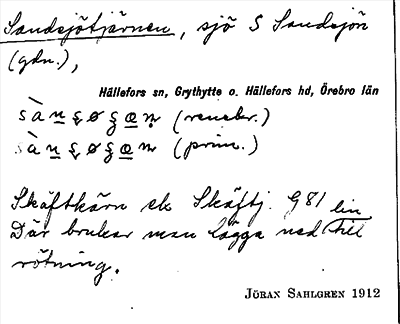 Sandsjötjärnen, sjö S Sandsjön
(gdn.),
Hällefors sn, Grythytte o. Hällefors hd, Örebro län
(prim.)
Skäftkärn ek Skäftj. G 81
Där brukar man lägga ned lin till
rötning.
JÖRAN SAHLGREN 1912